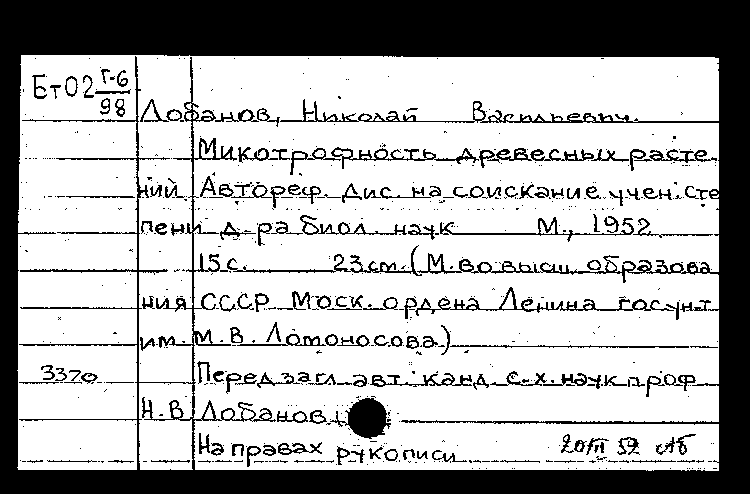 Бт02 Г-6
98
Лобанов, Николай Васильевич.
Микотрофность древесных расте-
ний Автореф. дис. на соискание учен. сте
пени д-ра биол. наук М., 1952
15 с. 23 см. (М.во высш. образова
ния СССР Моск. ордена Ленина гос. ун-т
им. М. В. Ломоносова)
3370 Перед загл. авт: канд. с.-х. наук проф
Н. В. Лобанов
На правах рукописи